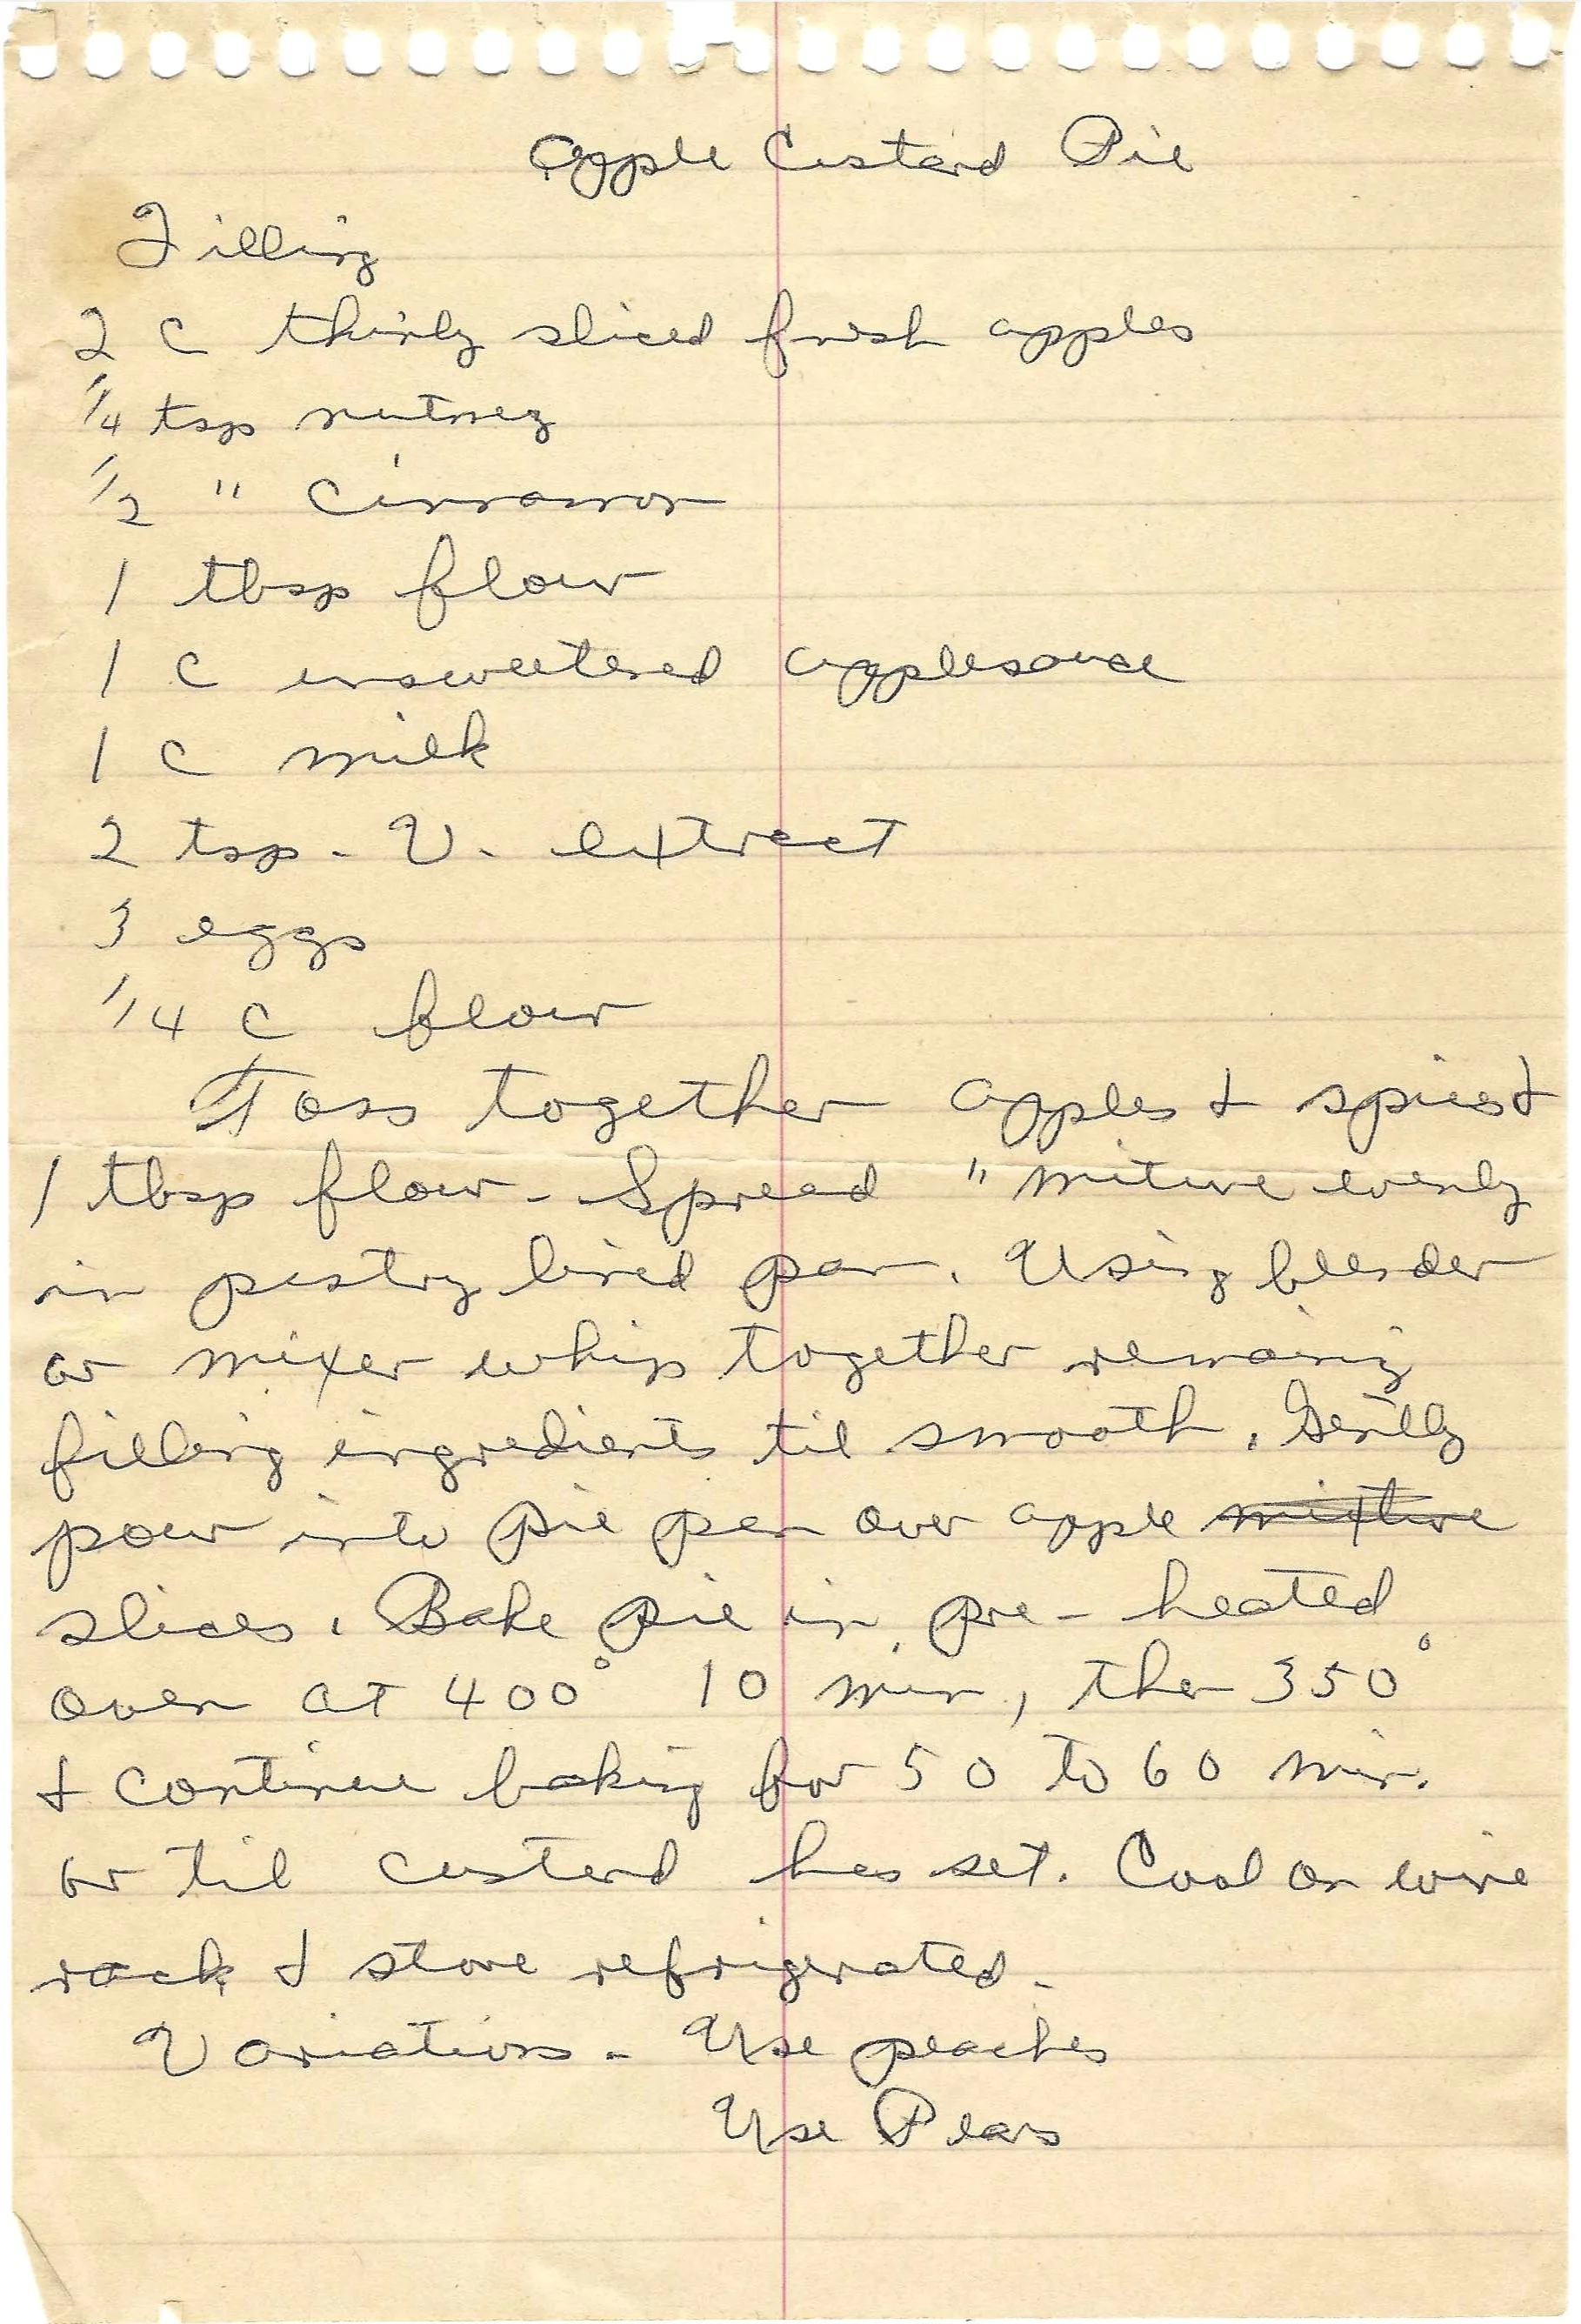 Apple Custard Pie
Filling
2 c thinly sliced fresh apples
1/4 tsp nutmeg
1/2 " cinnamon
1 tbsp flour
1 c unsweetened applesauce
1 c milk
2 tsp. V. extract
3 eggs
1/4 c flour
Toss together apples & spices &
1 tbsp flour - Spread " mixture evenly
in pastry lined pan. Using blender
or mixer whip together remaining
filling ingredients til smooth. Gently
pour into pie pan over apple mixture
slices. Bake pie in pre-heated
oven at 400° 10 min, then 350°
& continue baking for 50 to 60 min.
or til custard has set. Cool on wire
rack & store refrigerated.
Variations - Use peaches
Use Pears